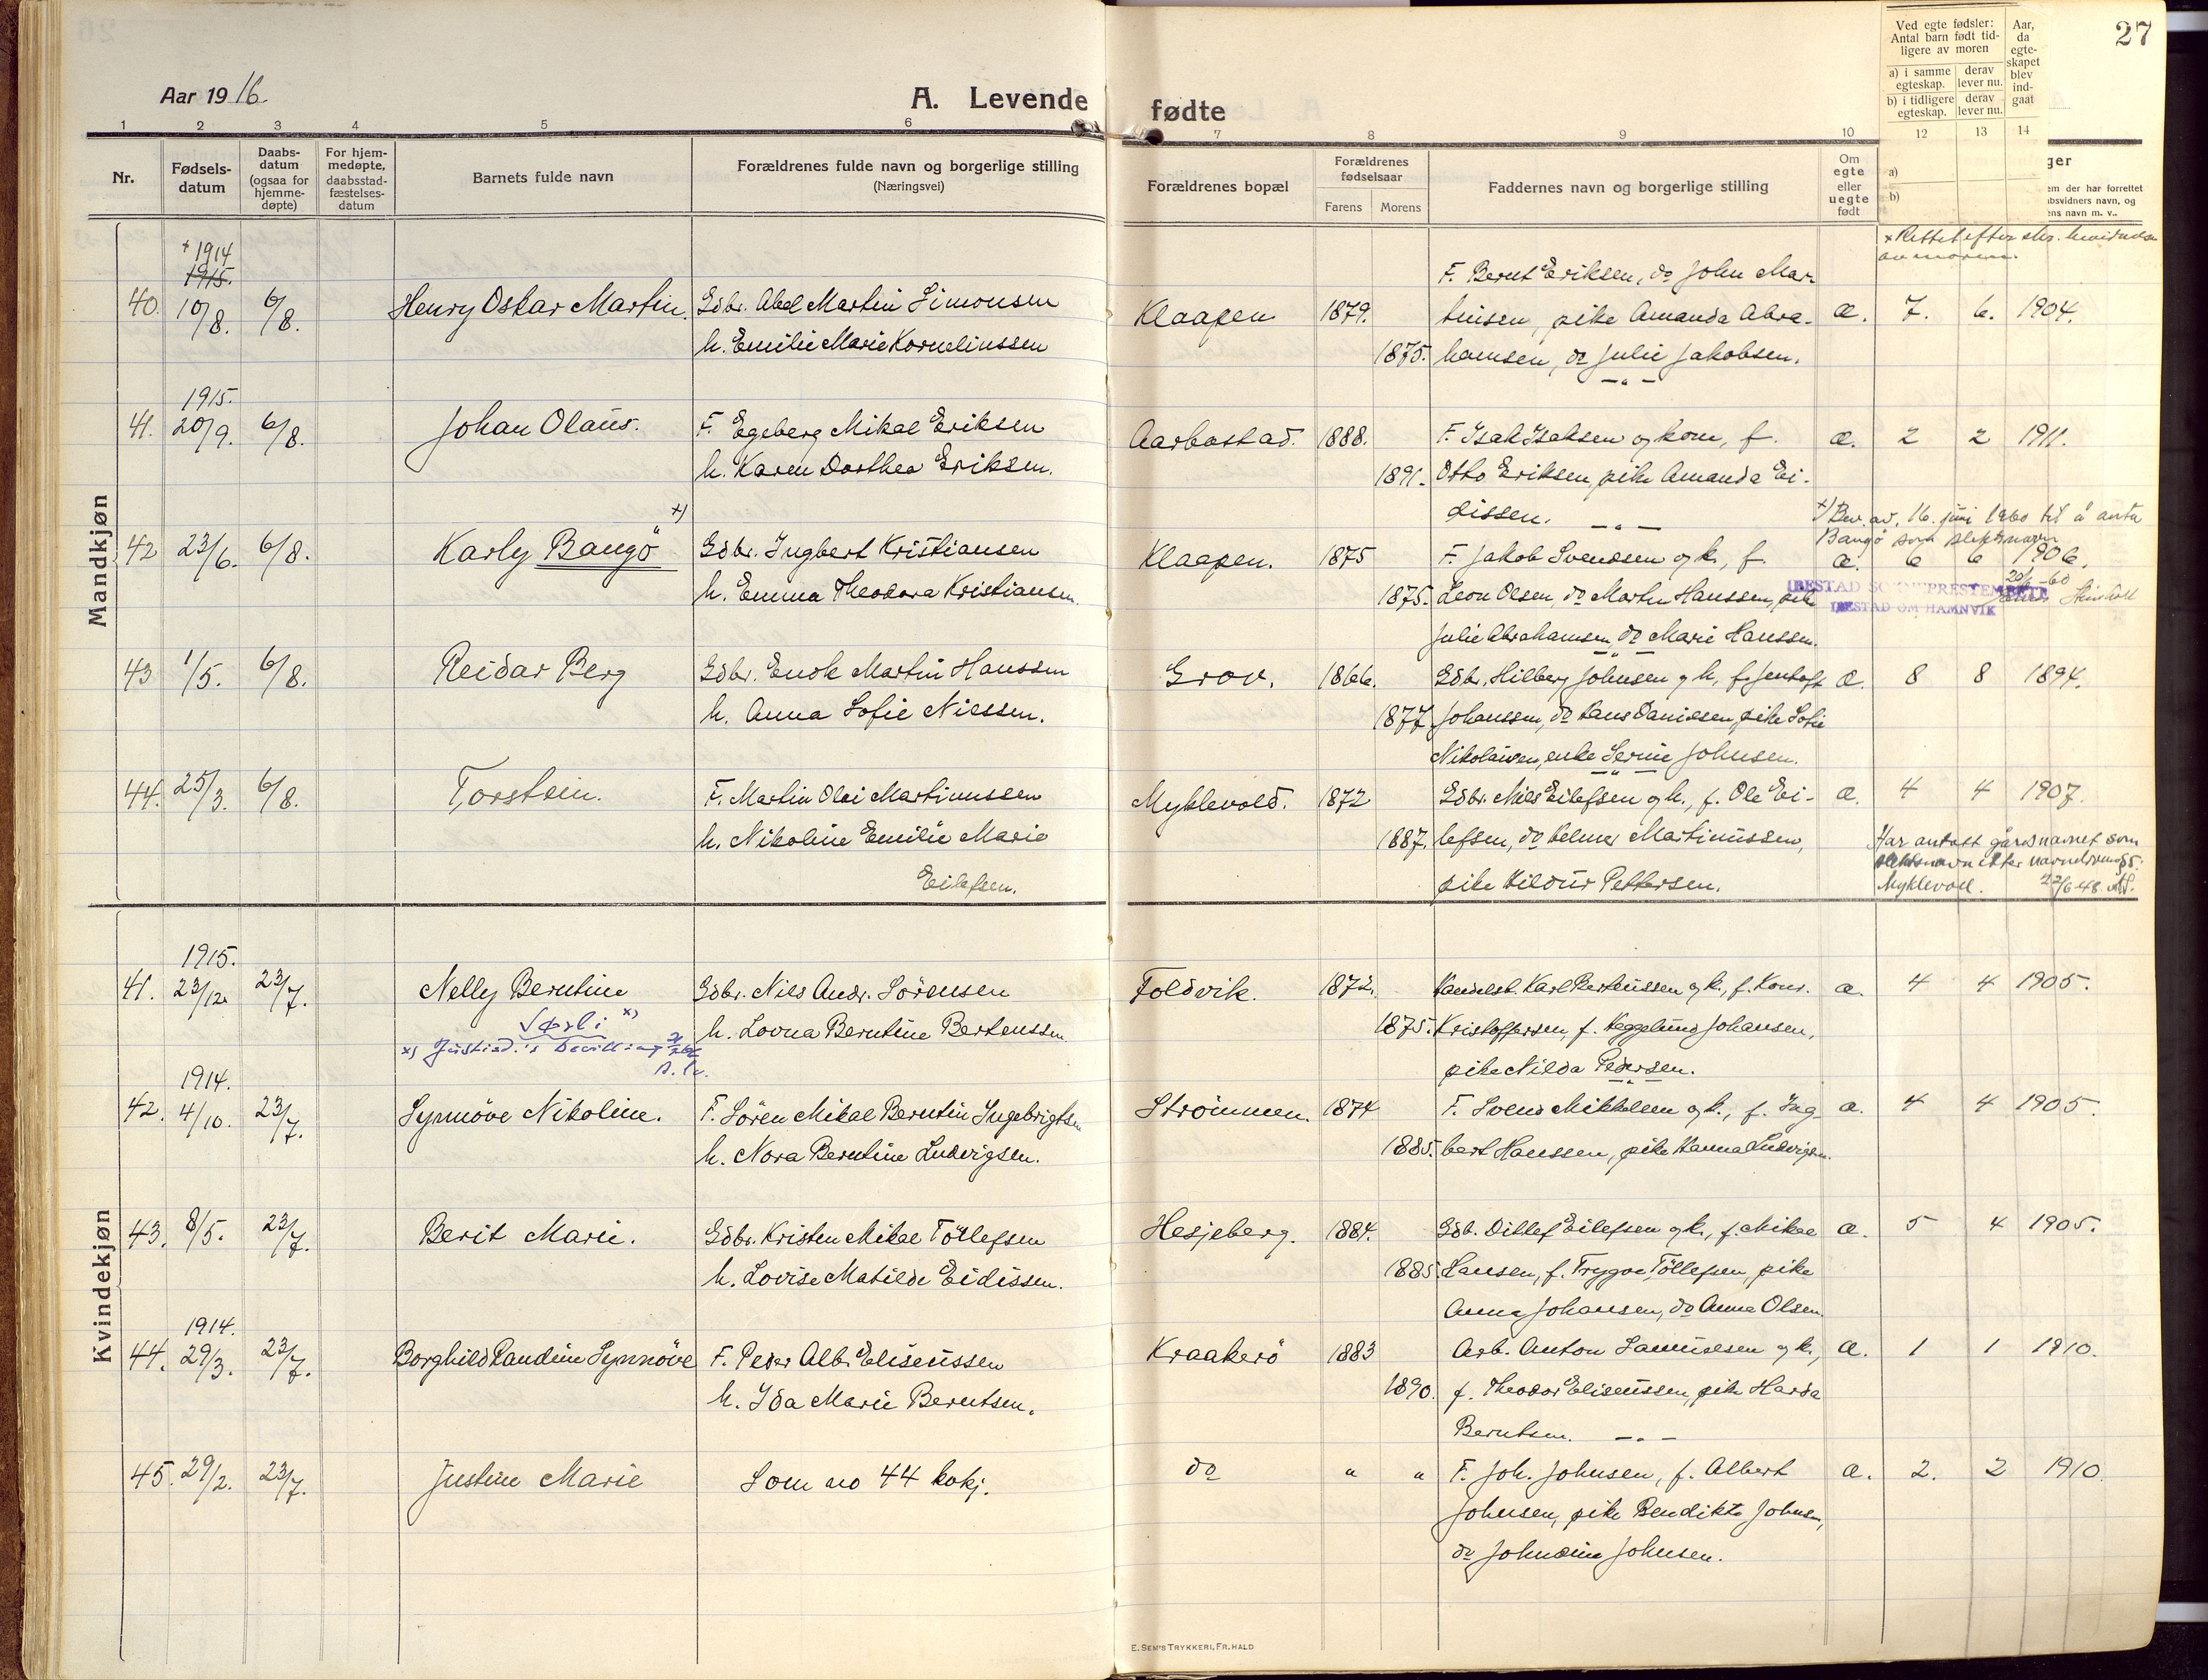 27
Aar 1916.
A. Levende fødte
1 2 3 4 5 6 7 8 9 10 12 13 14
Nr.
Fødsels-
datum
Daabs-
datum
(ogsaa for
hjemme-
døpte)
For hjem-
medøpte,
daabsstad-
fæstelses-
datum
Barnets fulde navn
Forældrenes fulde navn og borgerlige stilling
(Næringsvei)
Forældrenes bopæl
Forældrenes
fødselsaar
Farens Morens
Faddernes navn og borgerlige stilling
Om
egte
eller
uegte
født
Ved egte fødsler:
Antal barn født tid-
ligere av moren
a) i samme
egteskap.
derav
lever nu.
b) i tidligere
egteskap.
derav
lever nu.
Aar,
da
egte-
skapet
blev
ind-
gaat
a)
b)
ger
em der har forrettet
bsvidners navn, og
ens navn m. v..
Mandkjøn
+ 1914
1915.
40. 10/8. 6/8. Henry Oskar Martin. Gdbr. Abel Martin Simonsen
h. Emilie Marie Korneliussen
Klaapen 1879. 1875.
F. Bernt Eriksen, do John Mar-
tinsen, pike Amanda Abra-
hamsen, do Julie Jakobsen.
æ. 7. 6. 1904.
+ Rettet efter
av moren.
1915.
41. 20/9. 6/8. Johan Olaus. F. Egeberg Mikal Eriksen
h. Karen Dorthea Eriksen.
Aarbostad. 1888. 1891.
F. Isak Isaksen og kone, f.
Otto Eriksen, pike Amanda Ei-
dissen.
æ. 2 2 1911.
42 23/6. 6/8. Karly Bangö +) Gdbr. Ingbert Kristiansen
h. Emma Theodora Kristiansen.
Klaapen. 1875 1875.
F. Jakob Svendsen og k., f.
Leon Olsen, do Martin Hanssen, pike
Julie Abrahamsen, do Marie Hanssen.
æ. 6 6 1906.
+) Bev. av. 16. juni 1960 til å anta
Bangø som slektsnavn
20/6-60
IBESTAD SOKNEPRESTEMBETE
IBESTAD OM HAMNVIK
43 1/5. 6/8. Reidar Berg Gdbr. Enok Martin Hanssen
h. Anna Sofie Nilssen.
Grov. 1866. 1877.
Gdbr. Hilberg Johnsen og h., f. Jentoft
Johanssen, do Hans Danielsen, pike Sofie
Nikolaisen, enke Serine Johnsen.
æ. 8 8 1894.
44. 25/3. 6/8. Torstein. F. Martin Olai Martinussen
h. Nikoline Emilie Marie
Eilefsen.
Myklevold. 1872 1887.
Gdbr. Nils Eilefsen og h., f. Ole Ei-
lefsen, do Helmer Martinussen,
pike Hildur Pettersen.
æ. 4 4 1907.
Har antatt gårdsnavnet som
slektsnavn etter
Myklevoll. 22/6 48.
Kvindekjøn
1915.
41. 23/12. 23/7. Nelly Berntine Gdbr. Nils Andr. Sörensen
h. Lovna Berntine Bertenssen.
Vøsli x)
x) Justisd.'s bevilling
Foldvik. 1872. 1875.
Handelsb. Karl Berteussen og k., f. Konr.
Kristoffersen, f. Heggelund Johansen,
pike Nilda Pedersen.
æ. 4 4 1905.
1914.
42. 4/10. 23/7. Synnöve Nikoline. F. Sören Mikal Berntin Ingebrigtsen
h. Nora Berntine Ludvigsen.
Strömmen. 1874 1885.
F. Svend Mikkelsen og k., f. Ing-
bert Hanssen, pike Hanna Ludvigsen.
æ. 4 4 1905.
43. 8/5. 23/7. Berit Marie. Gdbr. Kristen Mikal Töllefsen
h. Lovise Matilde Eidissen.
Hesjeberg. 1884. 1885.
Gdb. Ditlef Eilefsen og k., f. Mikal
Larsen, f. Trygve Töllefsen, pike
Anna Johansen, do Anna Olsen.
æ. 5 4 1905.
1914.
44. 29/3. 23/7. Borghild Randine Synnöve F. Peder Alb. Eliseussen
h. Ida Marie Berntsen.
Kraakerö 1883 1890.
Arb. Anton Samuelsen og k.,
f. Theodor Eliseussen, pike Harda
Berntsen.
æ. 1 1 1910.
45. 29/2. 23/7. Justine Marie Som no 44 kvkj.
do " "
F. Joh. Johnsen, f. Albert
Johnsen, pike Bendikte Johnsen,
do Johndine Johnsen.
æ. 2. 2 1910.
E. SEM'S TRYKKERI, FR. HALD